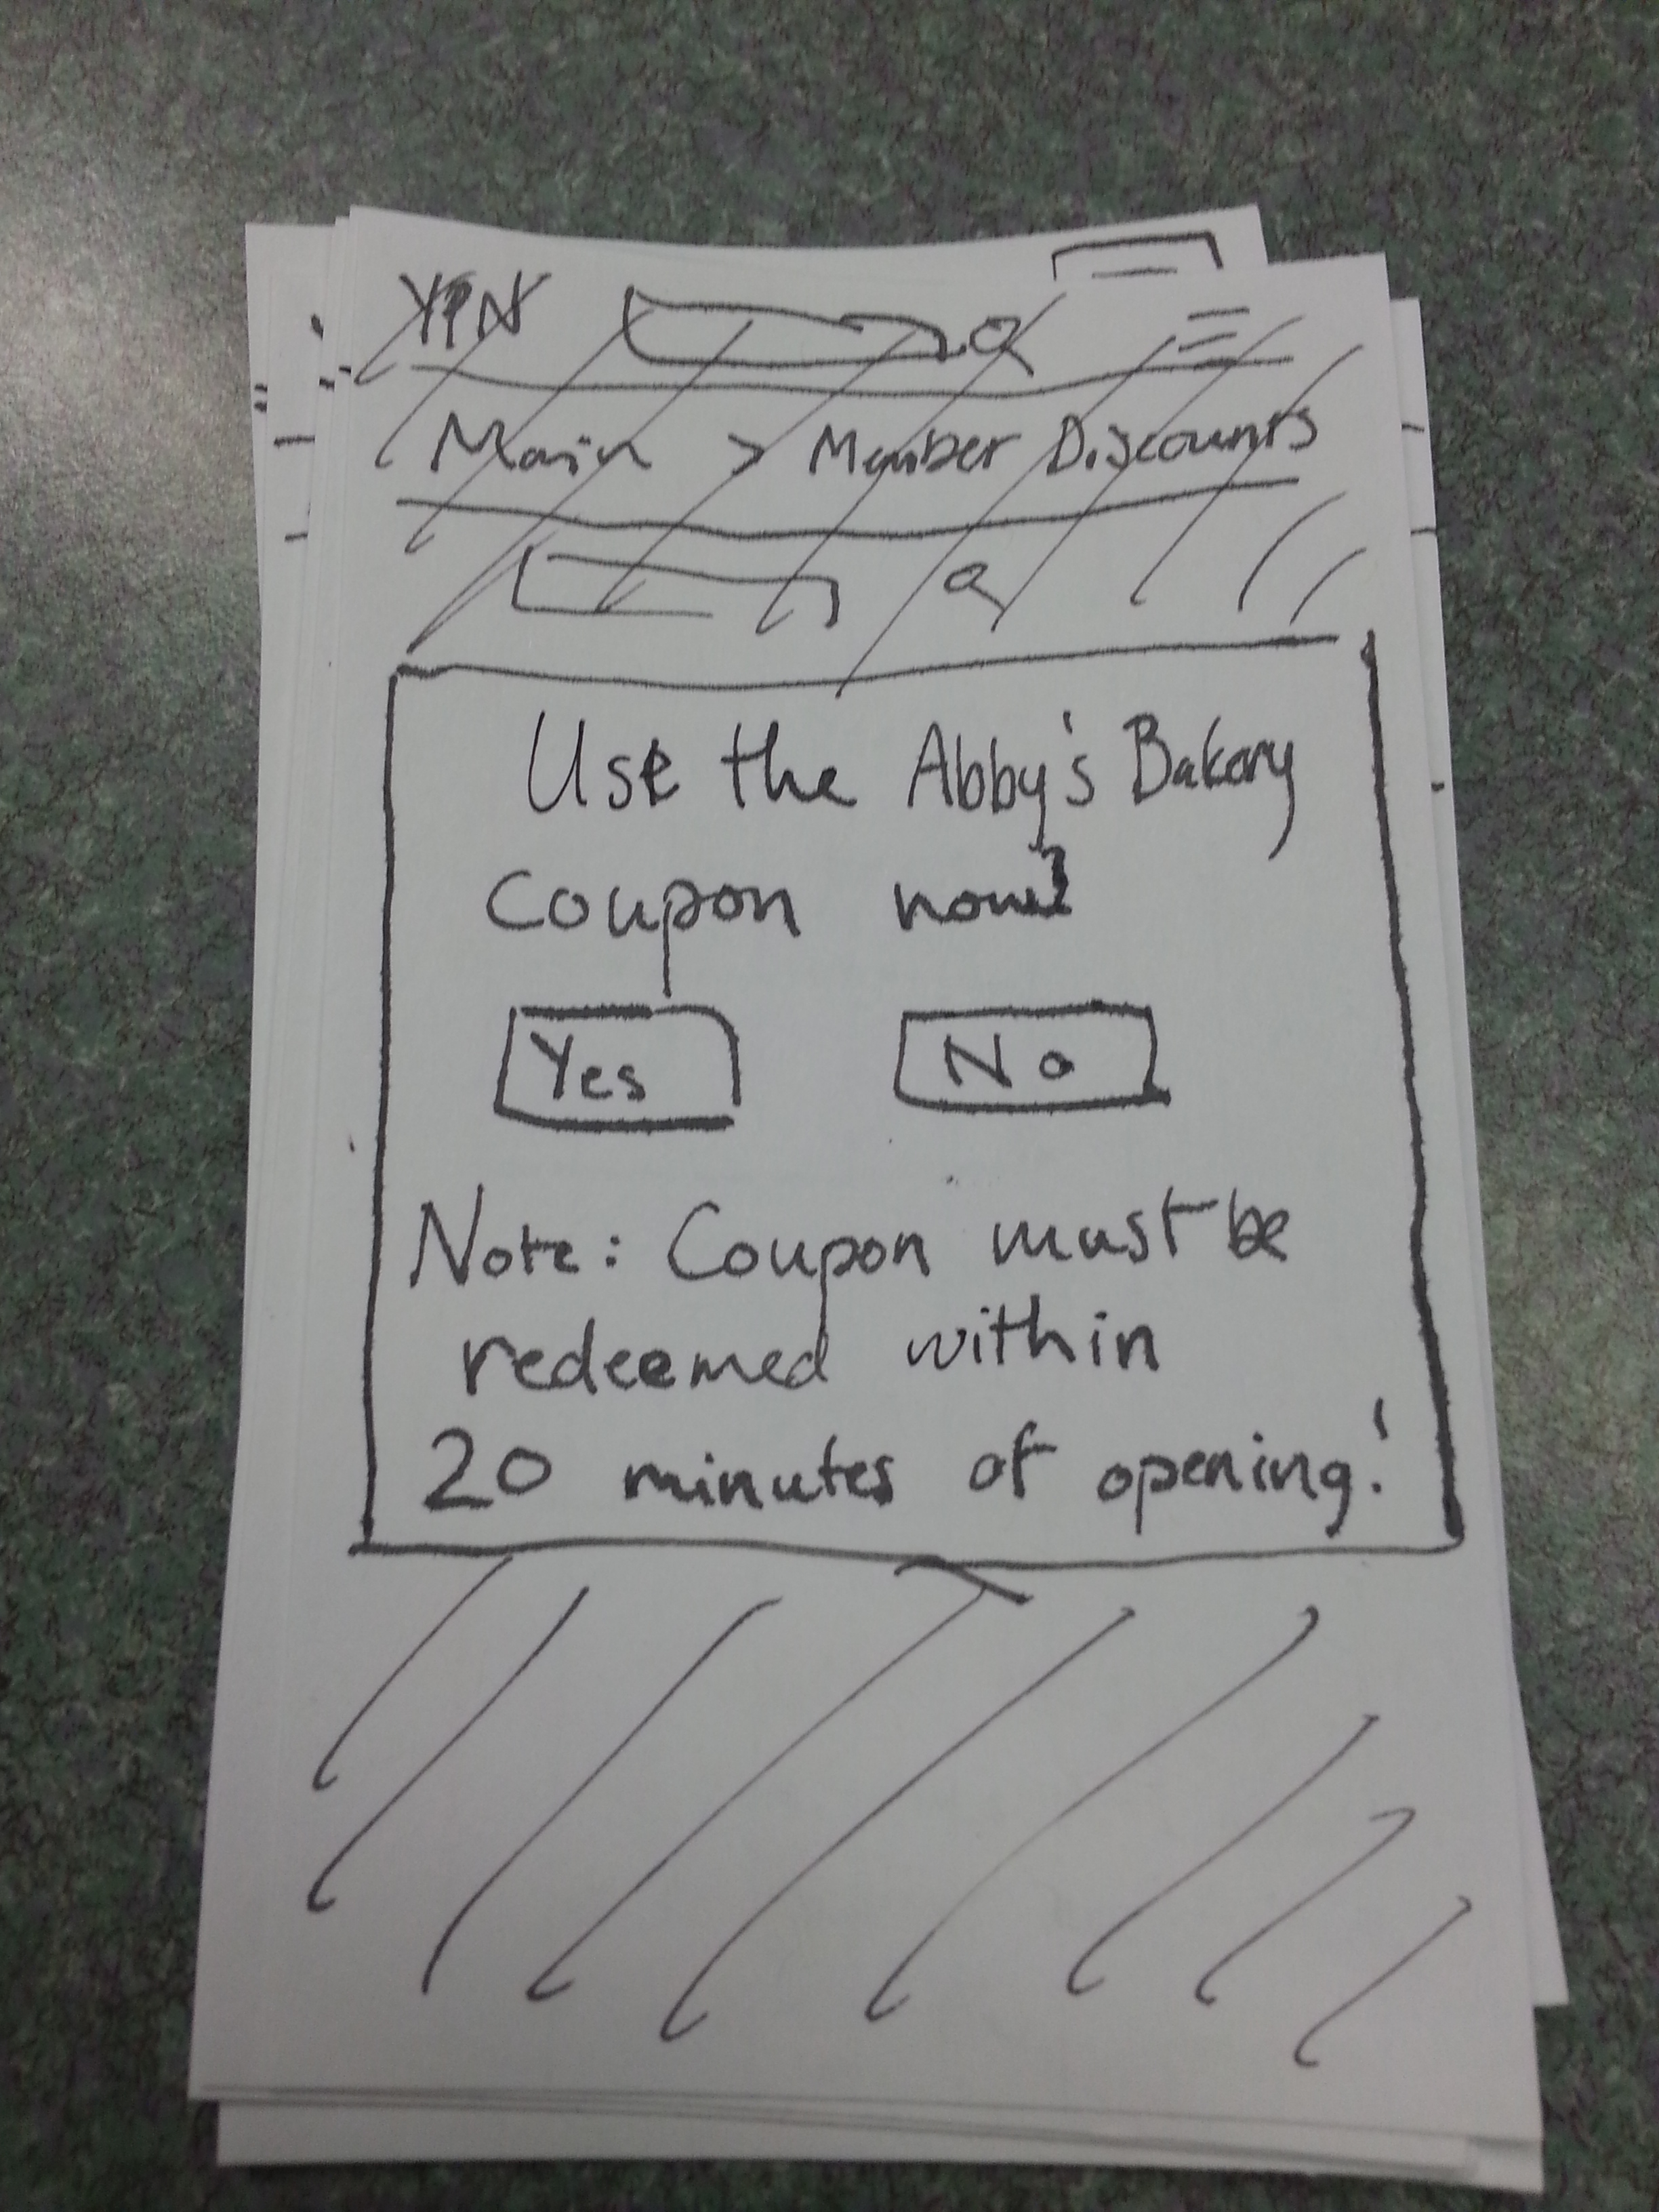 YPN
Main > Member Discounts
Use the Abby's Bakery
Coupon now?
Yes No
Note: Coupon must be
redeemed within
20 minutes of opening!